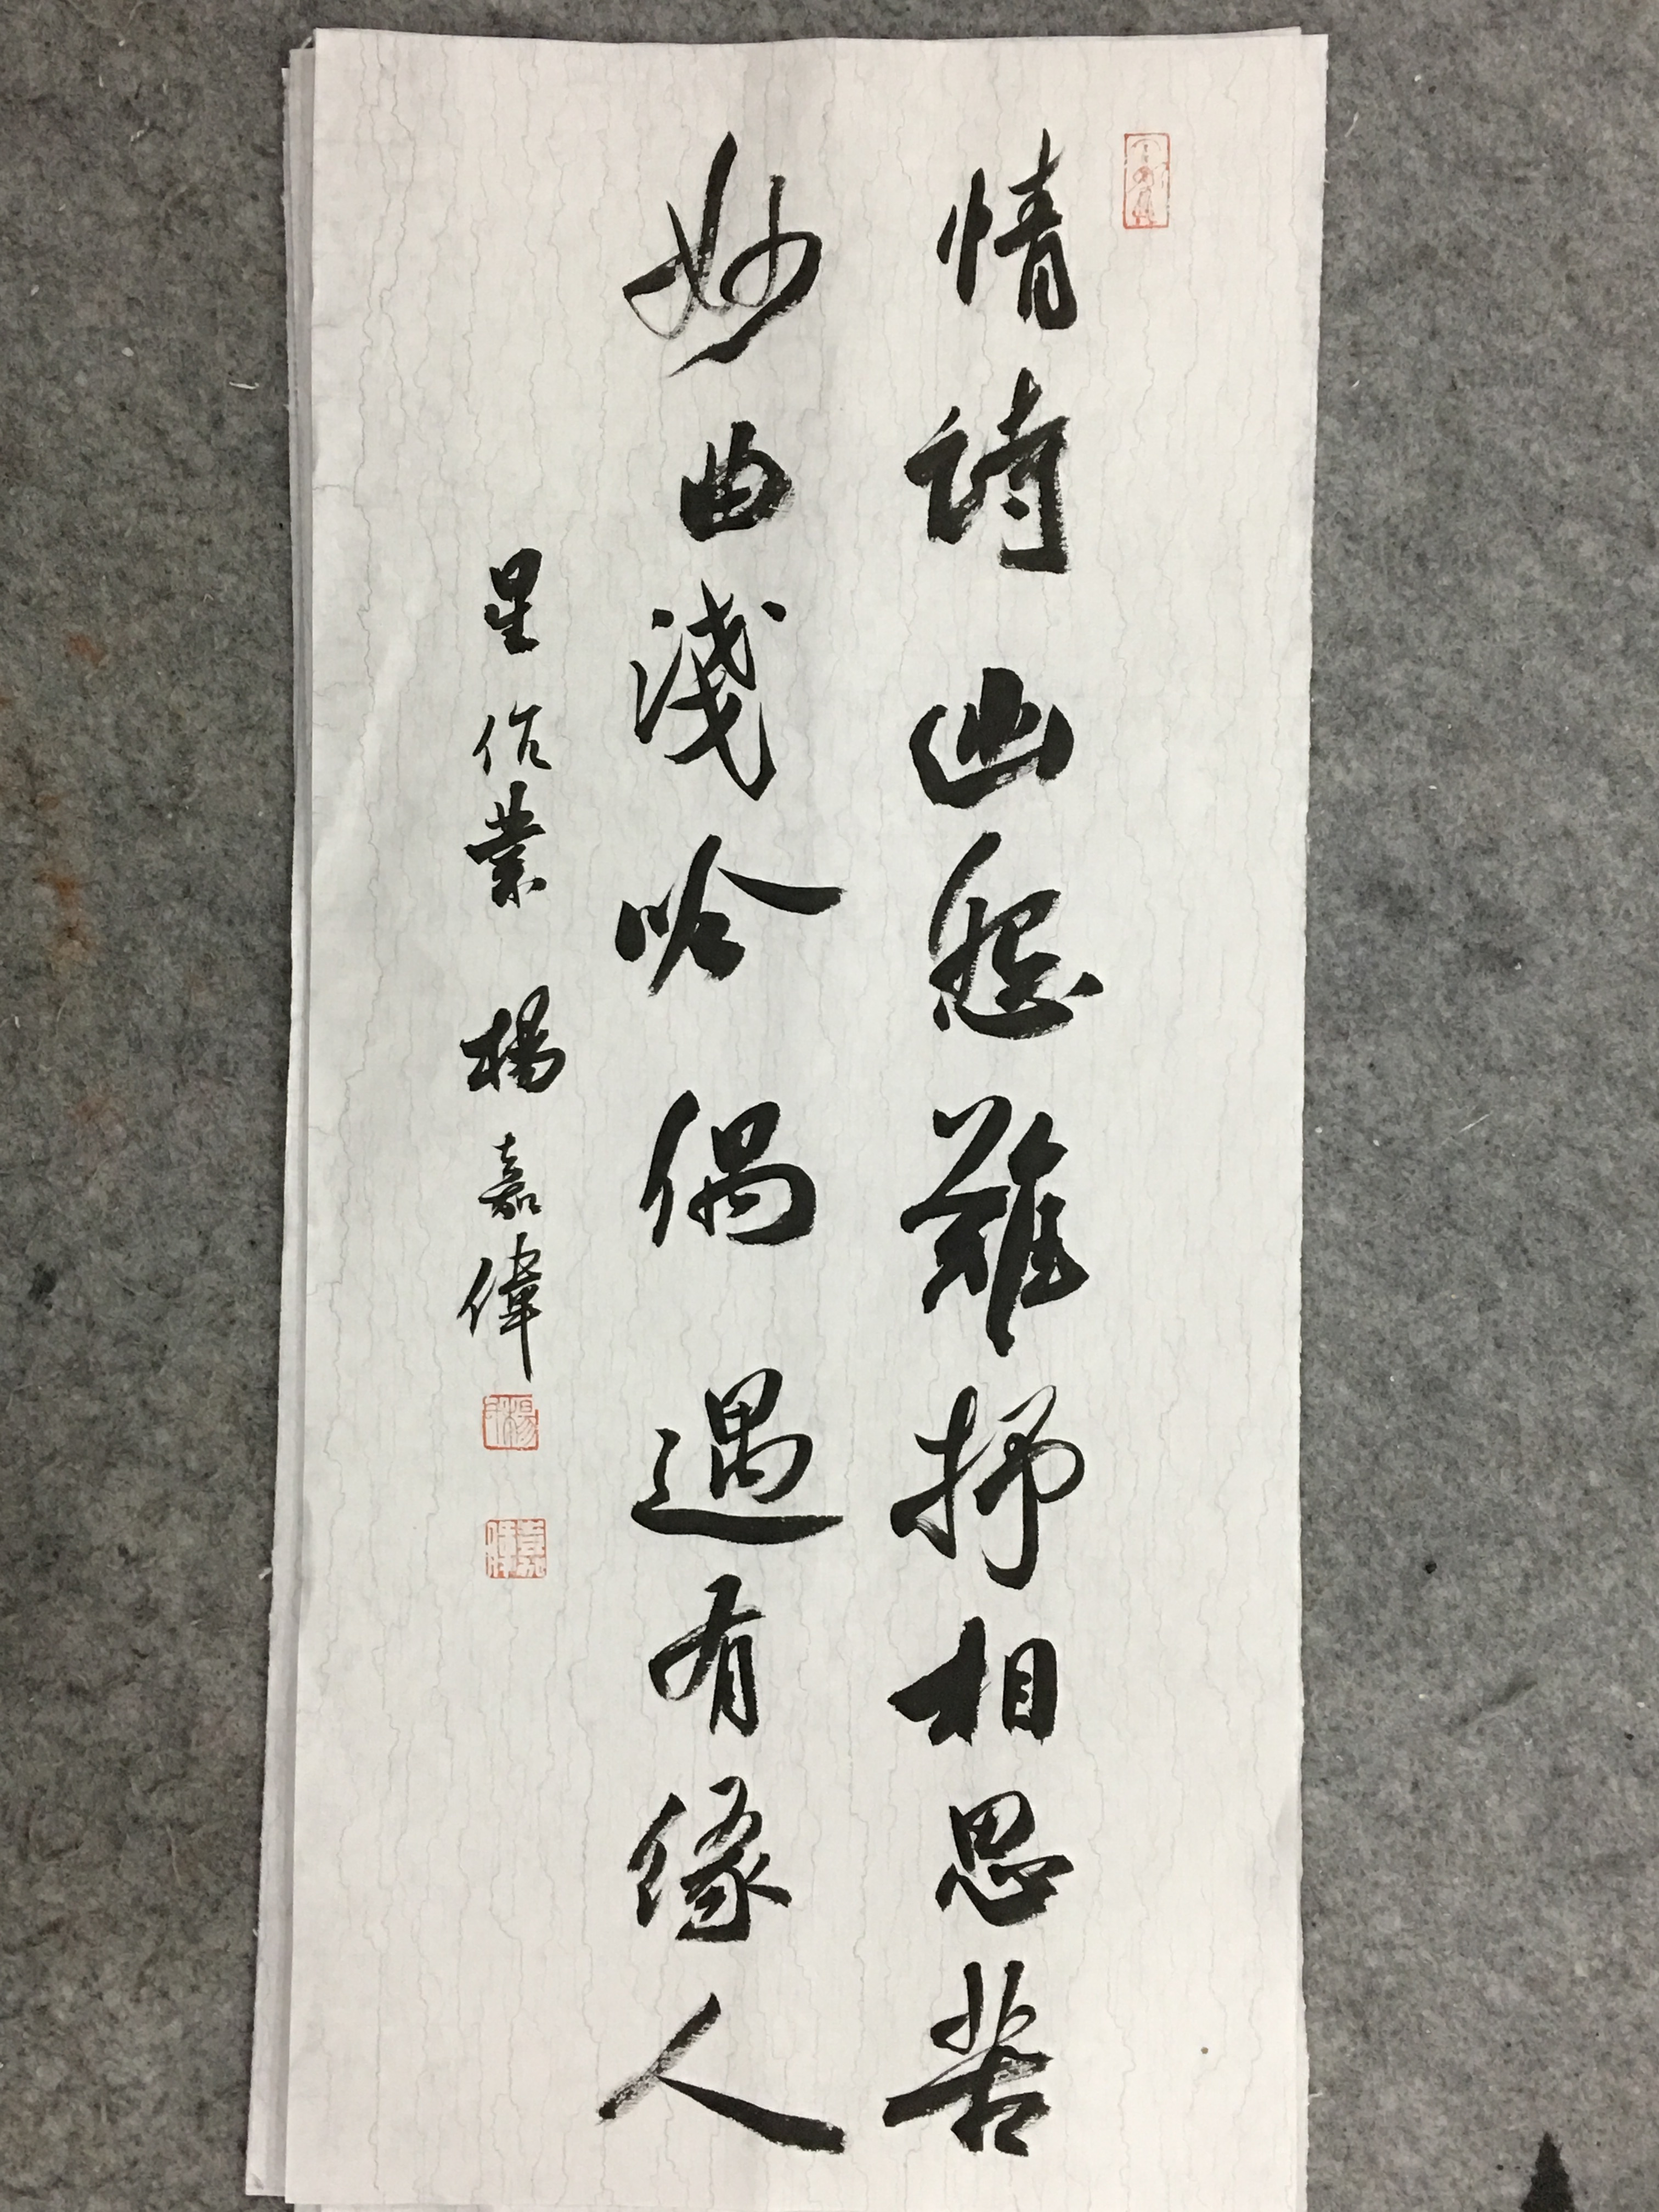 情詩幽怨難抒相思苦
妙曲淺吟偶遇有緣人
星作業 楊嘉偉
嘉偉